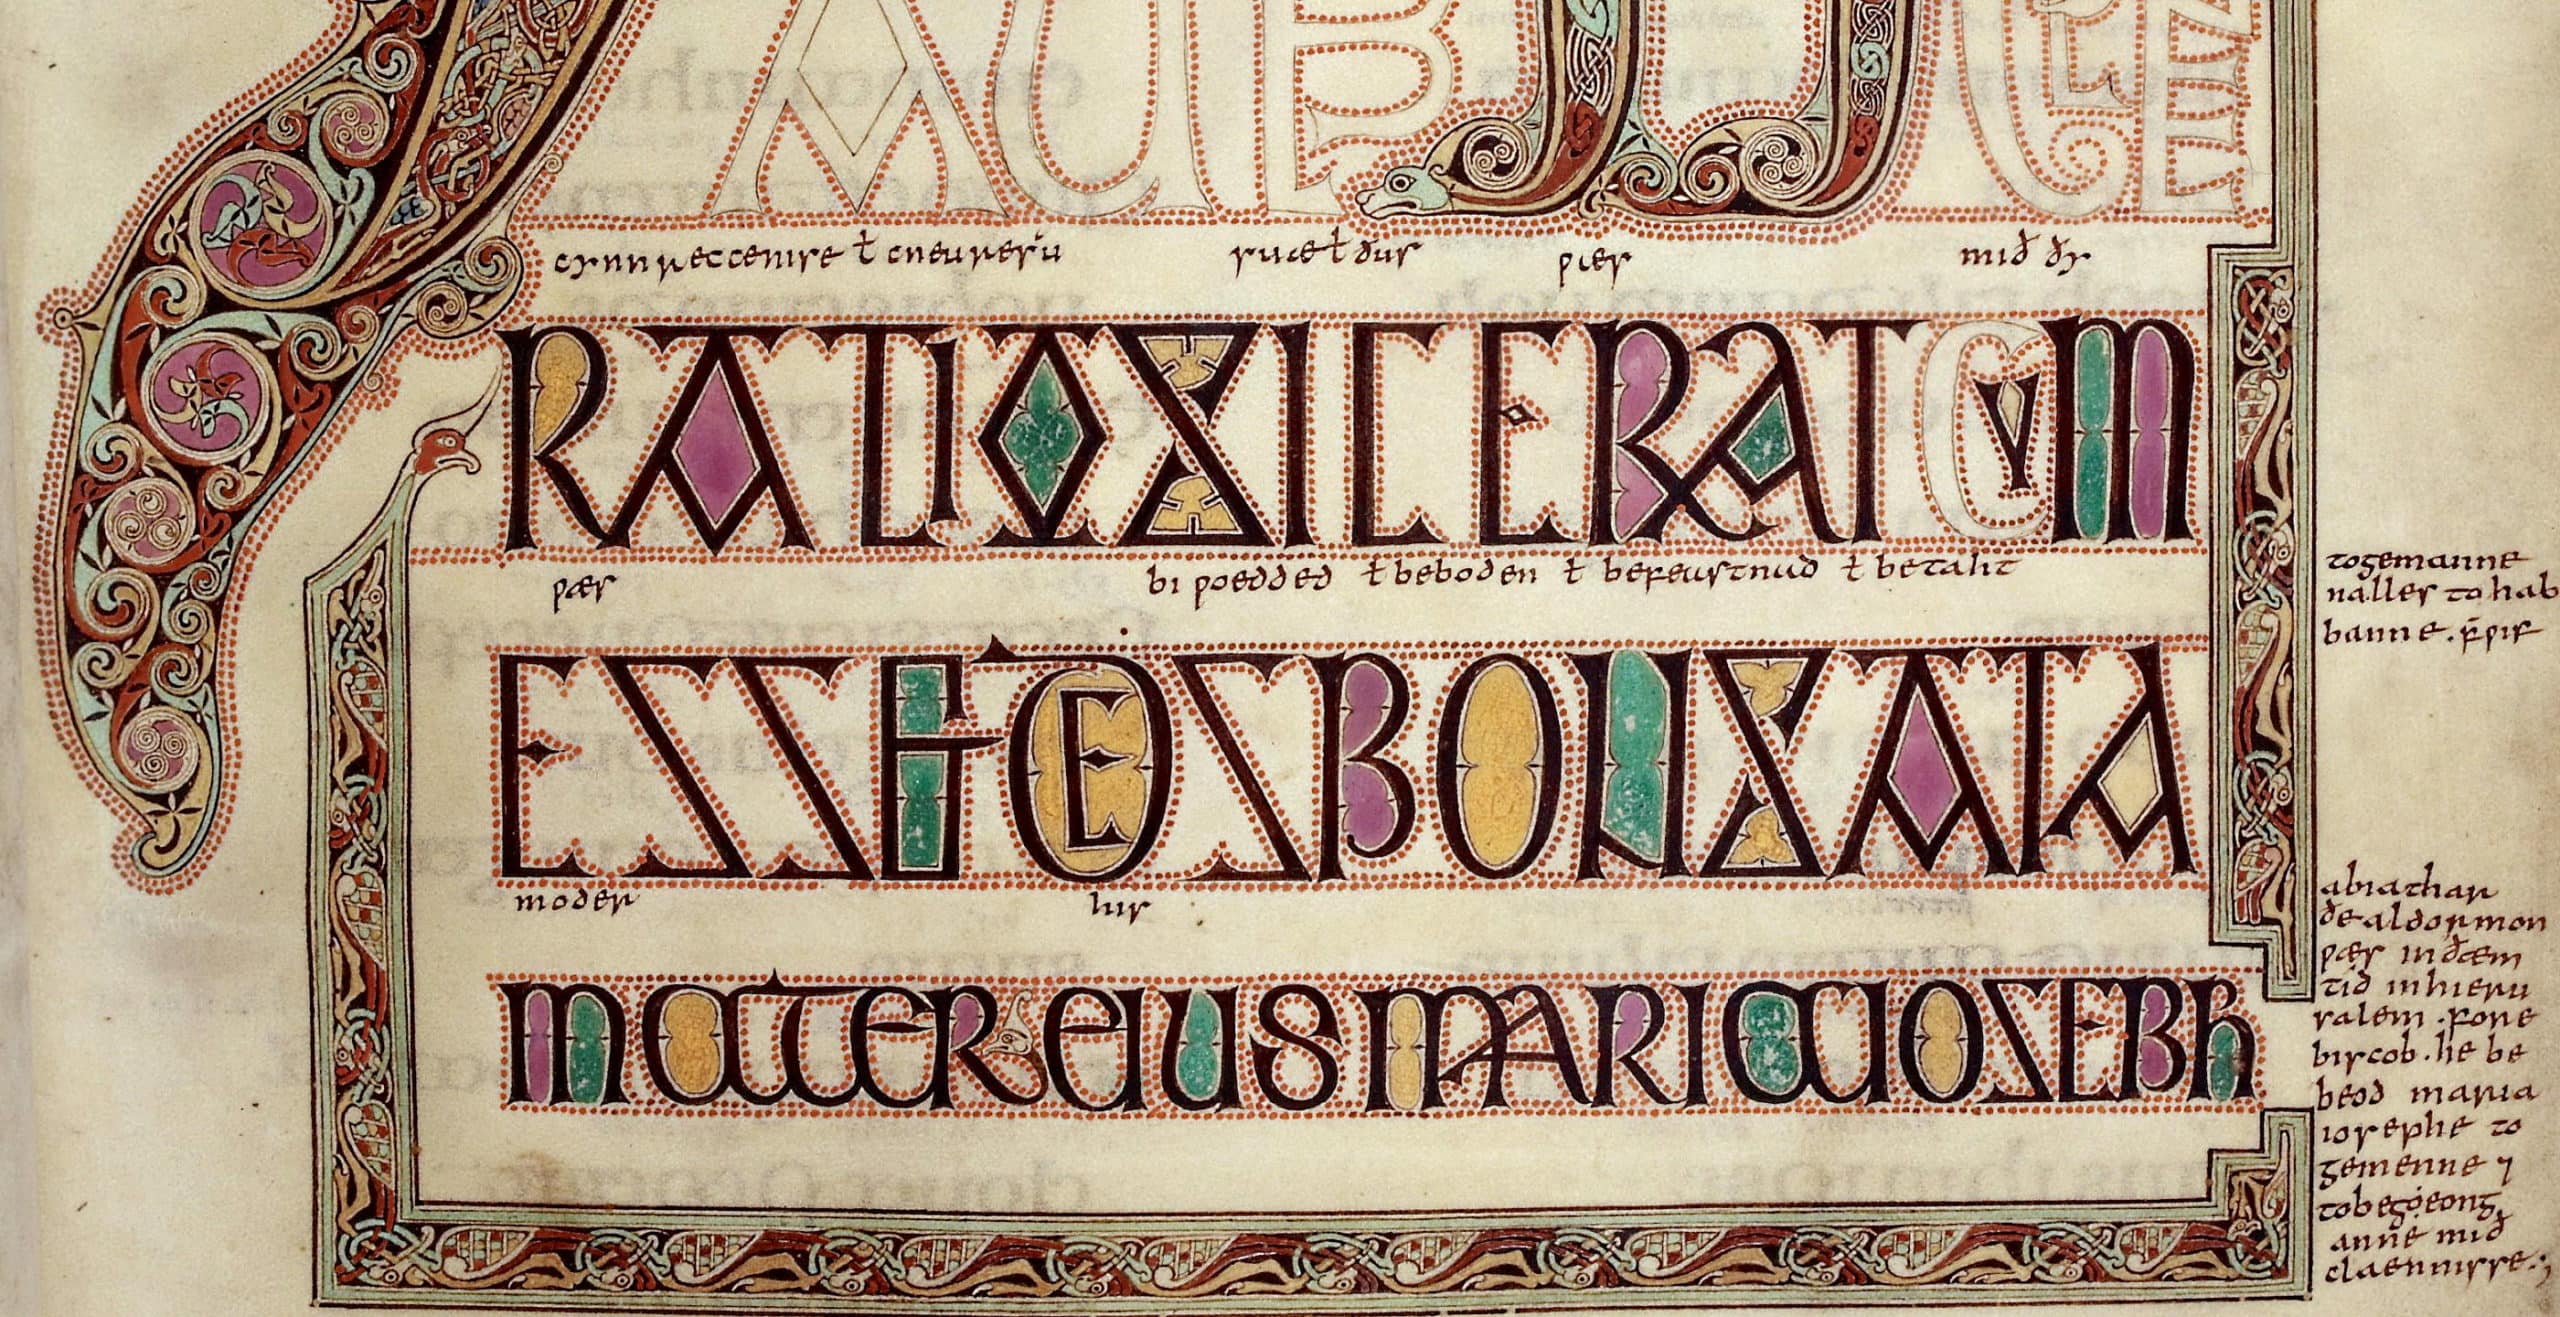 cynnreccenisse ł cneuresuu suæ ł ðus wæs mið ðy
RATIO SIC ERAT CUM
wæs bi woedded ł beboden ł befeastnad ł betaht
ESSET DESBONSATA
moder his
MATER EIUS MARIA IOSEBH
to gemanne
nalles to hab
banne. wif
abiathar
ðe aldormon
wæs in ðæm
tid in hieru
salem. fore
biscob. he be
beod maria
iosephe to
gemenne ⁊
to begeong
anne mið
claennisse